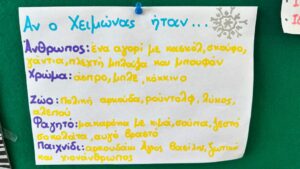 Αν ο Χειμώνας ήταν...
Άνθρωπος: ένα αγόρι με κασκόλ, σκούφο,
γάντια, πλεχτή μπλούζα και μπουφάν
Χρώμα: άσπρο, μπλε, κόκκινο
Ζώο: Πολική αρκούδα, ρούντολφ, λύκος,
αλεπού
Φαγητό: μακαρόνια με κιμά, σούπα, ζεστή
σοκολάτα, αυγό βραστό
Παιχνίδι: αρκουδάκι Άγιος Βασίλης, ξωτικό
και χιονάνθρωπος